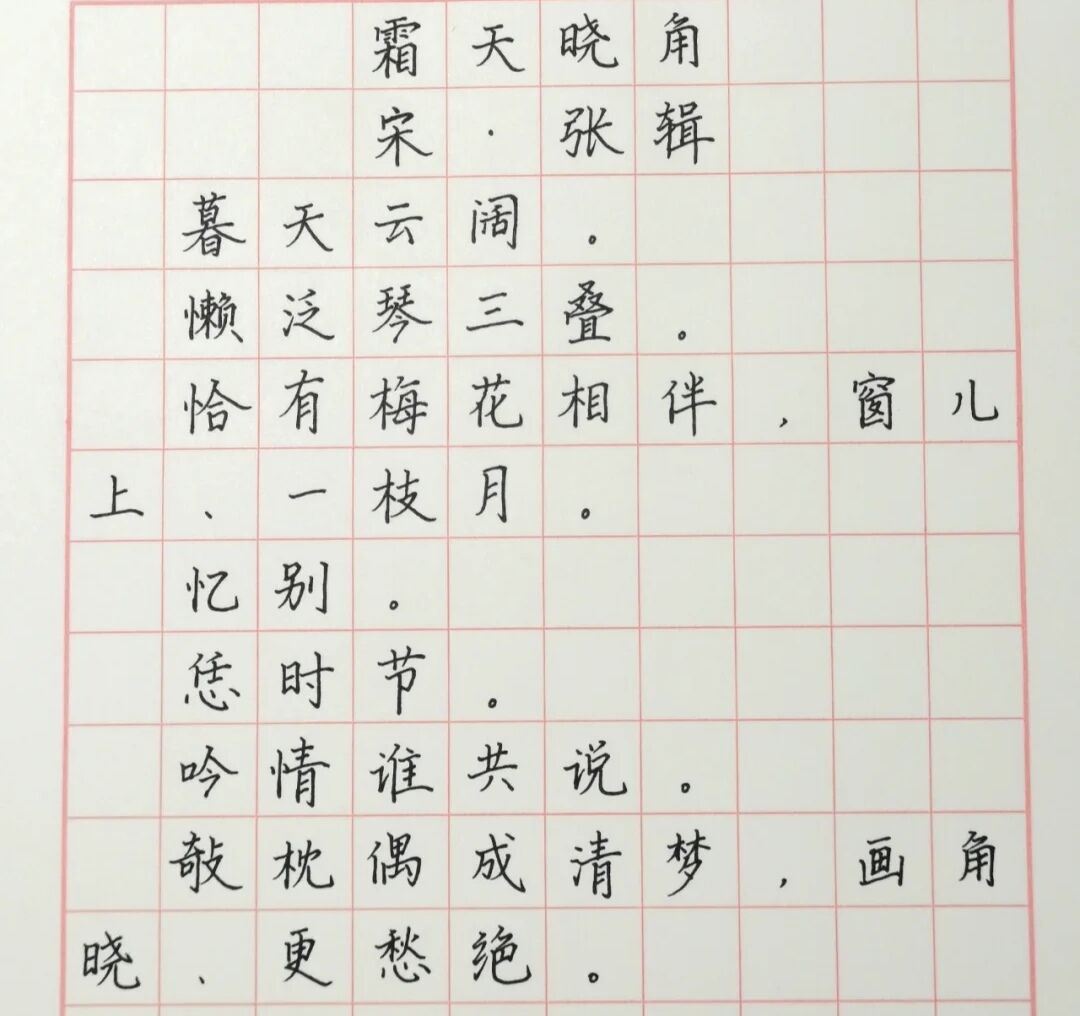 霜天晓角
宋·张辑
暮天云阔。
懒泛琴三叠。
恰有梅花相伴，窗儿
上、一枝月。
忆别。
恁时节。
吟情谁共说。
敧枕偶成清梦，画角
晓、更愁绝。